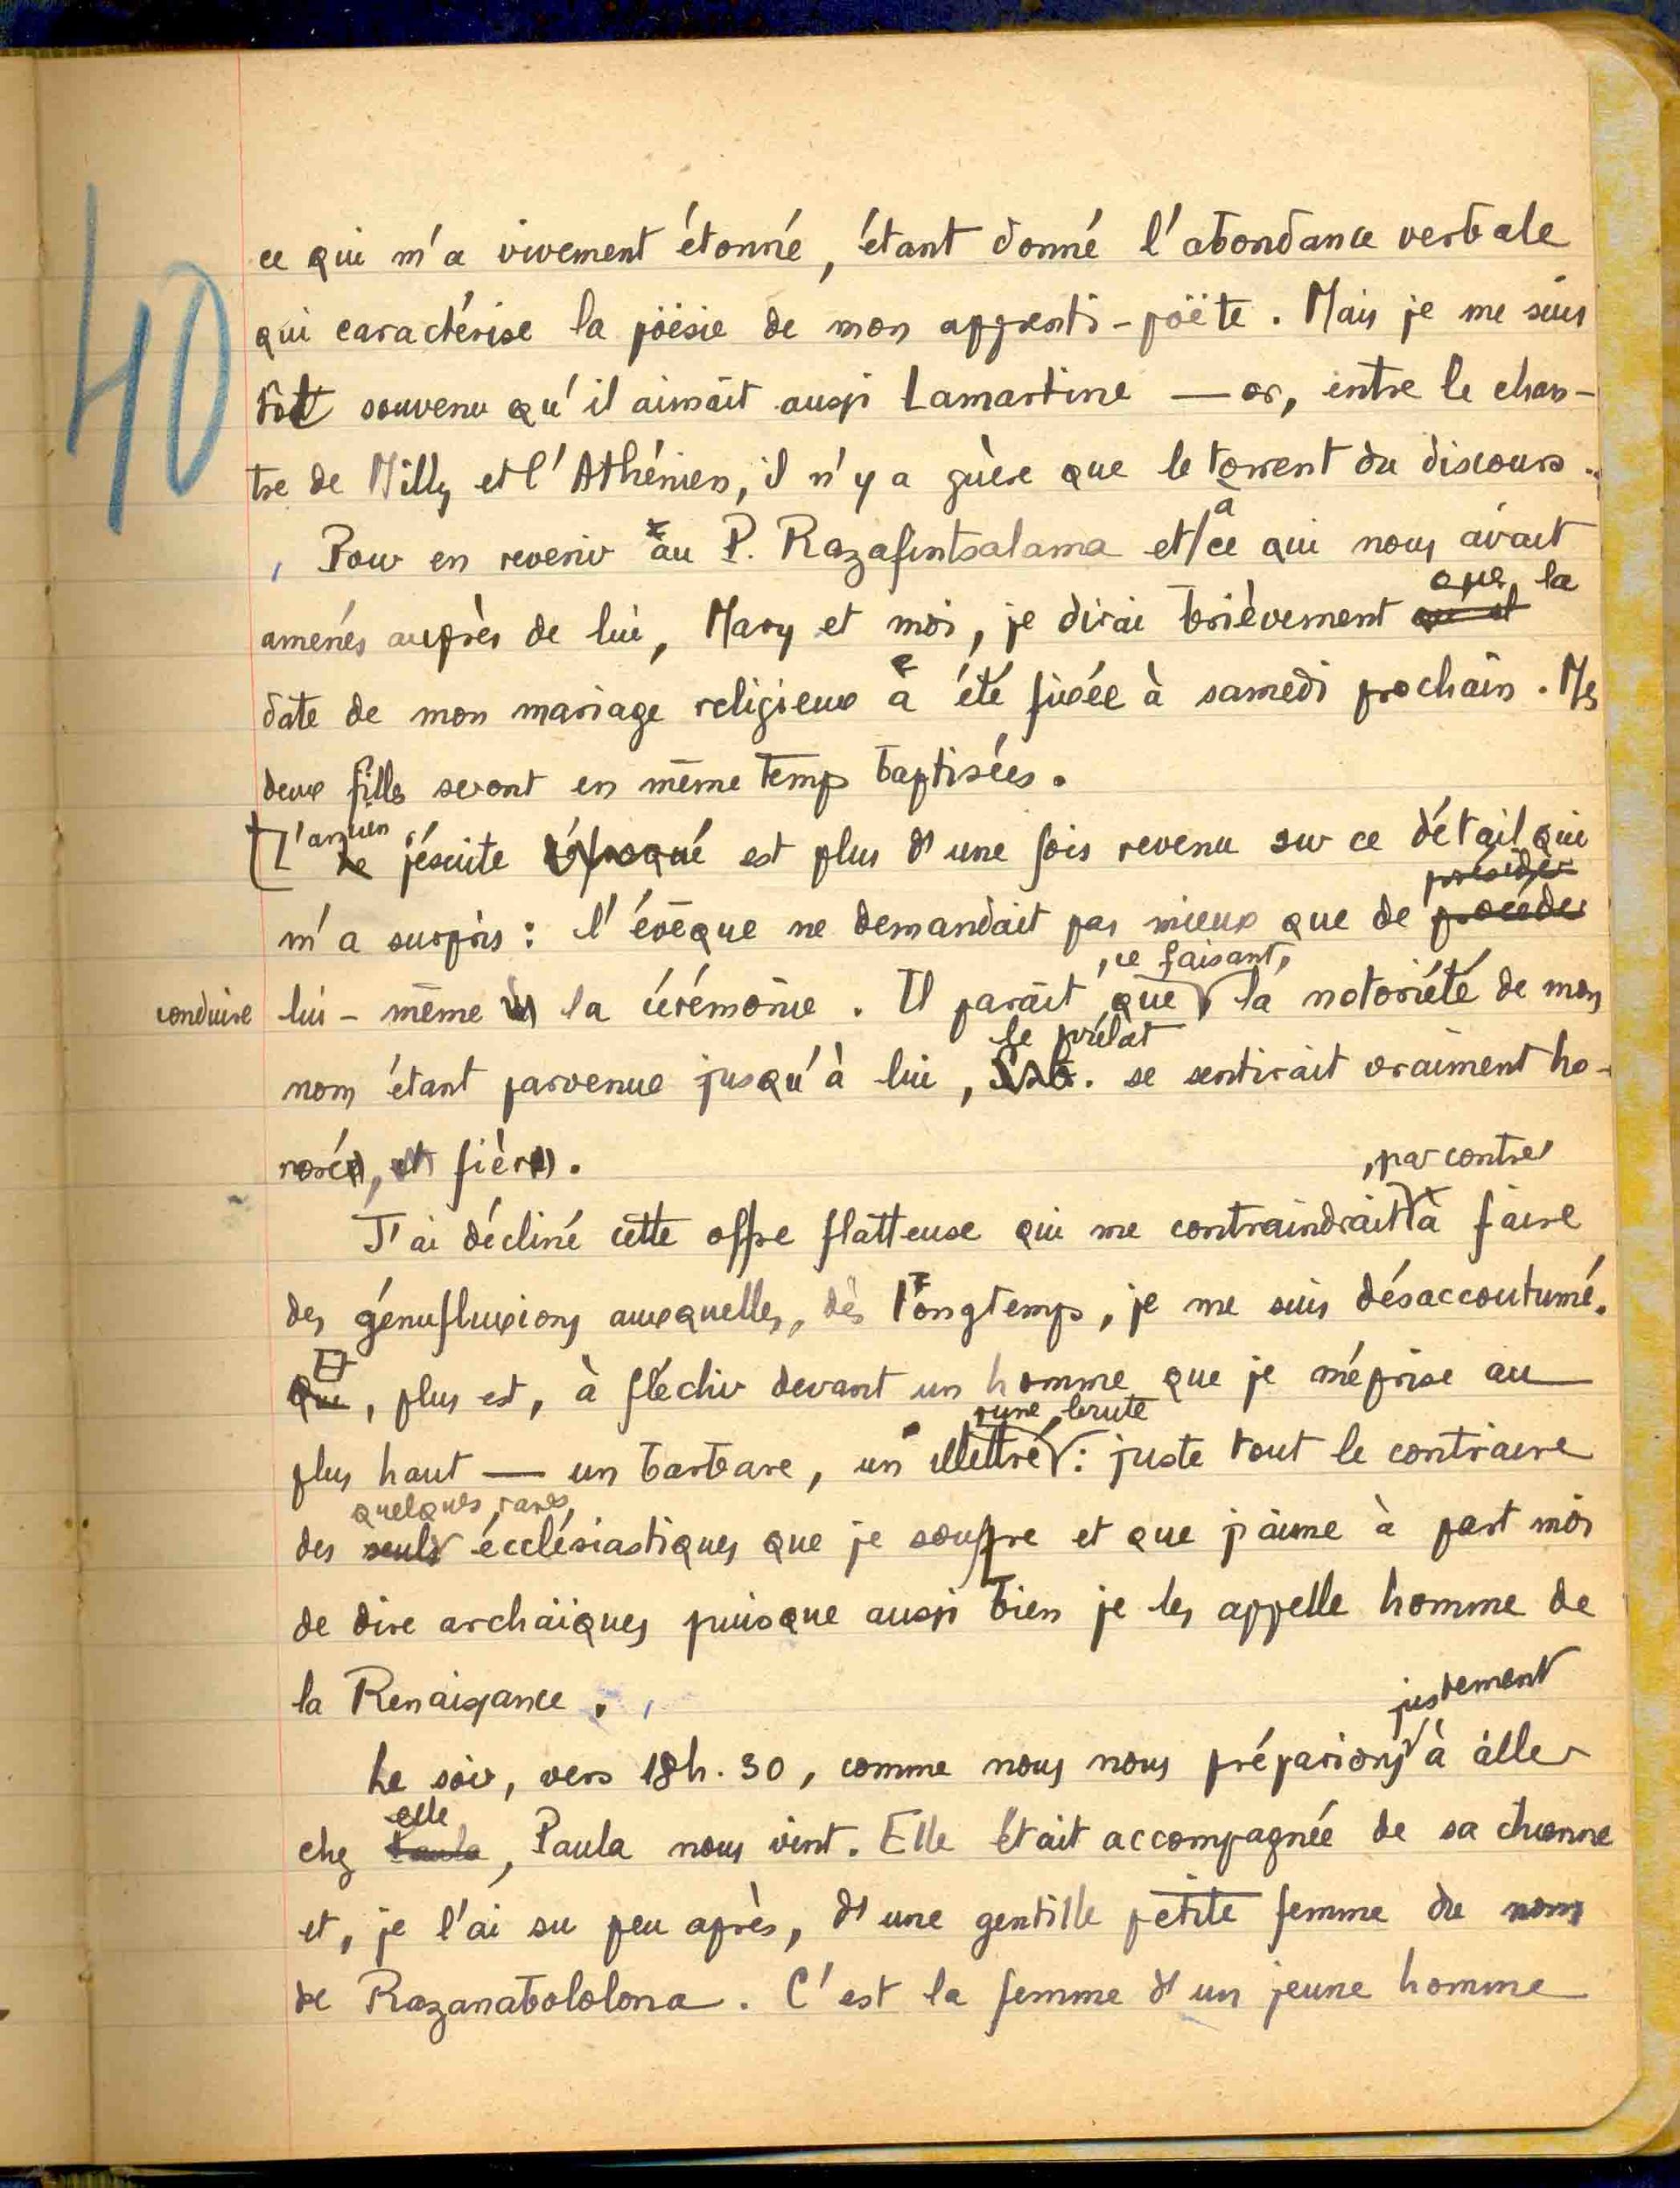 40
ce qui m'a vivement étonné, étant donné l'abondance verbale
qui caractérise la poësie de mon apprenti-poëte. Mais je me suis
tôt souvenu qu'il aimait aussi Lamartine — or, entre le chan-
tre de Milly et l'Athénien, il n'y a guère que le torrent du discours.
Pour en revenir au P. Razafintsalama et à ce qui nous avait
que la
amenés auprès de lui, Mary et moi, je dirai brièvement
date de mon mariage religieux a été fixée à samedi prochain. Mes
deux filles seront en même temps baptisées.
L'ancien
Le jésuite défroqué est plus d'une fois revenu sur ce détail qui
présider
m'a surpris : l'évêque ne demandait pas mieux que de procéder
, ce faisant,
conduire lui-même à la cérémonie. Il paraît que la notoriété de mon
le prélat
nom étant parvenue jusqu'à lui, se sentirait vraiment ho-
noré, et fier.
, par contre,
J'ai décliné cette offre flatteuse qui me contraindrait à faire
des génufluxions auxquelles, dès longtemps, je me suis désaccoutumé.
Et
Que, plus est, à fléchir devant un homme que je méprise au
, une brute
plus haut — un barbare, un illettré : juste tout le contraire
quelques rares
des seuls écclésiastiques que je souffre et que j'aime à part moi
de dire archaïques puisque aussi bien je les appelle homme de
la Renaissance.
justement
Le soir, vers 18h.30, comme nous nous préparions à aller
elle
chez Paula, Paula nous vint. Elle était accompagnée de sa chienne
et, je l'ai su peu après, d'une gentille petite femme du nom
de Razanabololona. C'est la femme d'un jeune homme